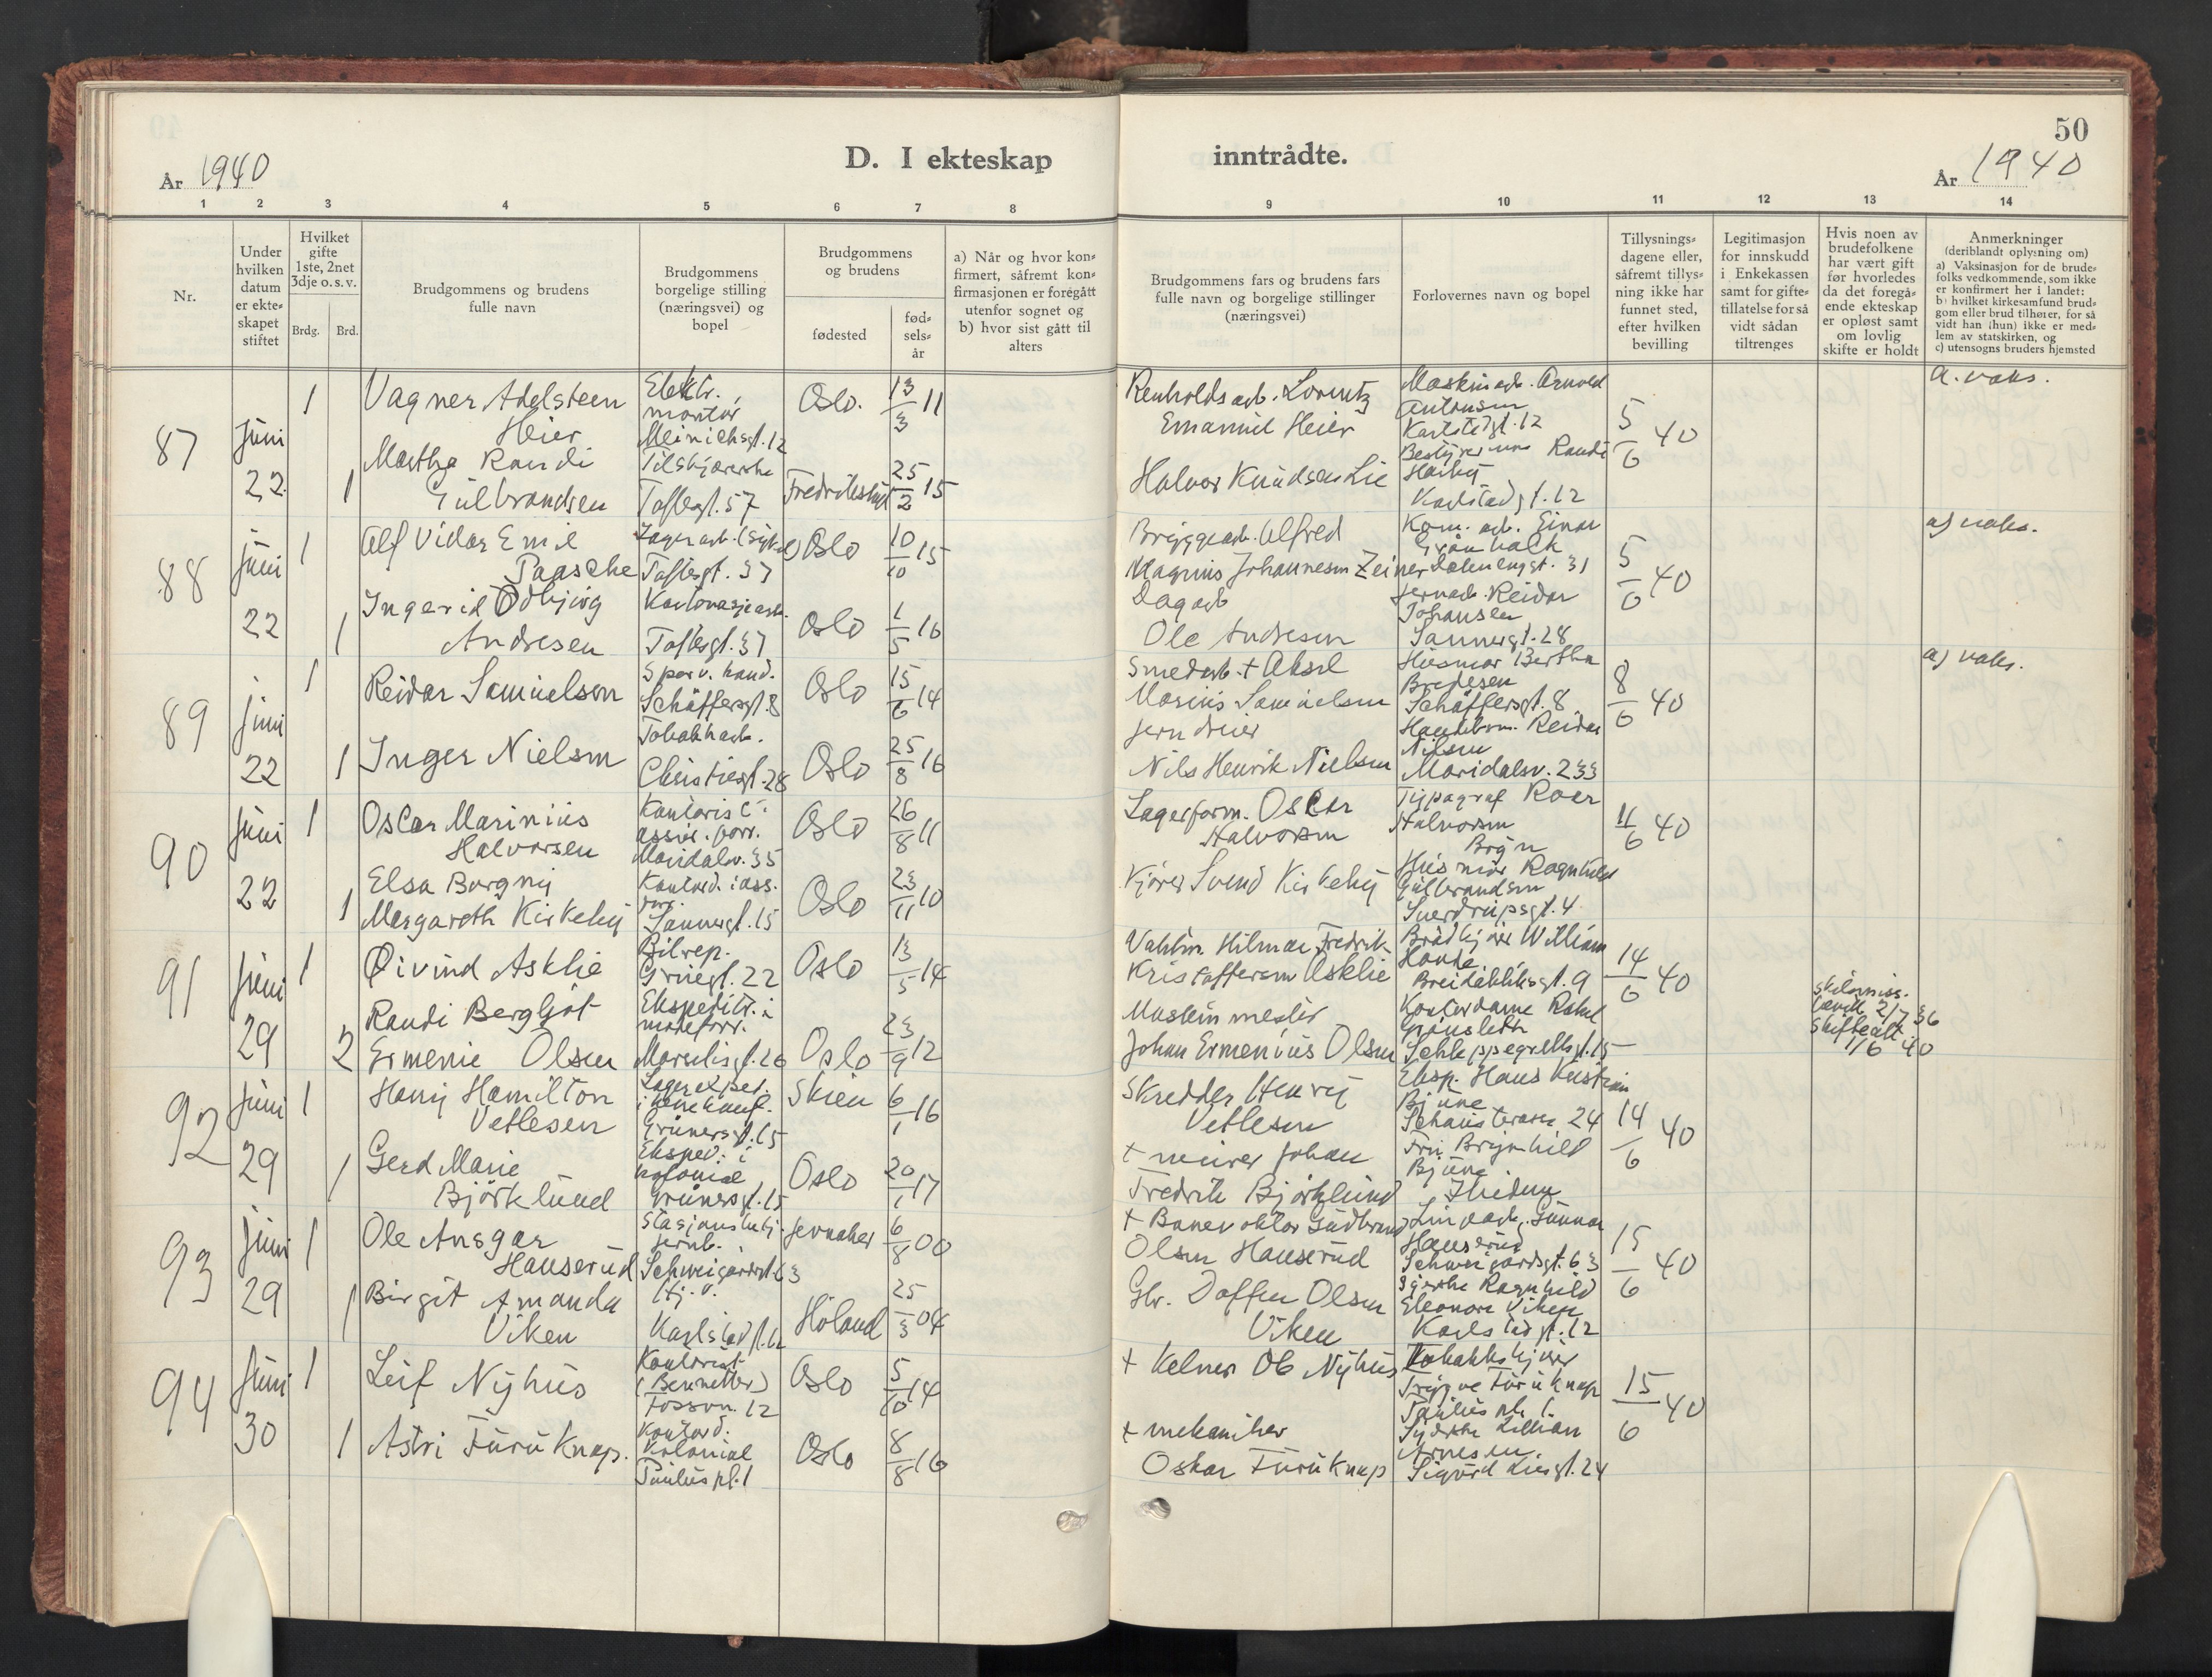 50
År 1940
D. I ekteskap inntrådte.
År 1940
1 2 3 4 5 6 7 8 9 10 11 12 13 14
Nr.
Under hvilken datum er ekte-skapet stiftet
Hvilket gifte 1ste, 2net 3dje o. s. v.
Brdg. Brd.
Brudgommens og brudens fulle navn
Brudgommens borgelige stilling (næringsvei) og bopel
Brudgommens og brudens
fødested
fød-sels-år
a) Når og hvor kon-firmert, såfremt kon-firmasjonen er foregått utenfor sognet og b) hvor sist gått til alters
Brudgommens fars og brudens fars fulle navn og borgelige stillinger (næringsvei)
Forlovernes navn og bopel
Tillysnings-dagene eller, såfremt tillys-ning ikke har funnet sted, efter hvilken bevilling
Legitimasjon for innskudd i Enkekassen samt for gifte-tillatelse for så vidt sådan tiltrenges
Hvis noen av brudefolkene har vært gift før hvorledes da det foregå-ende ekteskap er opløst samt om lovlig skifte er holdt
Anmerkninger
(deriblandt oplysning om)
a) Vaksinasjon for de brude-folks vedkommende, som ikke er konfirmert her i landet:
b) hvilket kirkesamfund brud-gom eller brud tilhører, for så vidt han (hun) ikke er med-lem av statskirken, og
c) utensogns bruders hjemsted
87
Juni
22
1
Vagner Adelsteen
Heier
Elektr.
montør
Meinichsgt. 12
Oslo.
13/3 11
Renholdsarb. Lorentz
Emanuel Heier
Maskinarb. Arnold
Antonsen
Karlstdgt. 12
5/6 40
a. vaks.
1
Martha Randi
Gulbrandsen
Tilskjærerske
Toftesgt. 57
Fredrikstad
25/2 15
Halvor Knudsen Lie
Bestyrerinne Randi
Karlstadgt. 12
88
Juni
22
1
Alf Vidar Emil
Paasche
Toftesgt. 37
Oslo
10/10 15
Bryggearb. Alfred
Magnus Johannesen Zeiner
Kom. arb. Einar
Dælenengt. 31
5/6 40
a) vaks.
1
Ingerid Odbjørg
Andresen
Kartonasjearb.
Toftesgt. 37
Oslo
1/5 16
Dagarb
Ole Andresen
Jernarb. Reidar
Johansen
Sannergt. 28
89
Juni
22
1
Reidar Samuelsen
Sporv. kond.
Schäffersgt. 8
Oslo
15/6 14
Smedarb. + Aksel
Marius Samuelsen
Husmor Bertha
Bredesen
Schäffersgt. 8
8/6 40
a) vaks.
1
Inger Nielsen
Tobakkarb.
Christiesgt. 28
Oslo
25/8 16
Jerndreier
Nils Henrik Nielsen
Reidar
Nilsen
Maridalsv. 233
90
Juni
22
1
Oscar Marinius
Halvorsen
Kontorist i
assur. forr.
Maridalsv. 35
Oslo
26/8 11
Lagerform. Oscar
Halvorsen
Typograf Roar
Halvorsen
Bryn
11/6 40
1
Elsa Borgny
Margareth Kirkeby
Kontord. i ass.
forr.
Sannergt. 15
Oslo
23/11 10
Kjører Svend Kirkeby
Husmor Ragnhild
Gulbrandsen
Sverdrupsgt. 4
91
Juni
29
1
Øivind Asklie
Bilrep.
Grünegt. 22
Oslo
13/5 14
Vaktm. Hilmar Fredrik
Kristoffersen Asklie
Brødkjører William
Breidablikgt. 9
14/6 40
2
Randi Bergljot
Ermenie Olsen
Ekspeditr. i
moteforr.
Marselisgt. 26
Oslo
23/9 12
Maskinmester
Johan Ermenius Olsen
Kontordame Rakel
Schleppegrellsgt. 15
skilsmiss.
bevill. 2/7 36
Skifteatt.
1/6 40
92
Juni
29
1
Hamilton
Vetlesen
Lagereksped.
Grünersgt. 15
Skien
6/1 16
Skredder Henry
Vetlesen
Eksp. Hans Kristian
Bjune
24
14/6 40
1
Gerd Marie
Björklund
Eksped. i
kolonial
Grünersgt. 15
Oslo
20/1 17
+ murer Johan
Fredrik Björklund
Fru Brynhild
Bjune
93
Juni
29
1
Ole Ansgar
Hauserud
Stasjonsbetj.
jernb.
Schweigaardsgt. 63
Jevnaker
6/8 00
+ Banevokter Gudbrand
Olsen Hauserud
Gunnar
Hauserud
Schweigaardsgt. 63
15/6 40
1
Birgit Amanda
Viken
Hj. v.
Karlstadgt. 12
Høland
25/3 04
Gbr. Doffen Olsen
Viken
Syerske Ragnhild
Eleonore Viken
Karlstadgt. 12
94
Juni
30
1
Leif Nyhus
Kontorist
(Bennetter)
Fossvn. 12
Oslo
5/10 14
+ Kelner Ob Nyhus
Trygve Furuknap
Paulus pl. 1
15/6 40
1
Astri Furuknap.
Kontord.
Kolonial
Paulus pl. 1
Oslo
8/8 16
+ mekaniker
Oskar Furuknap
Syerske Lillian
Arnesen.
Sigurd Liesgt. 24